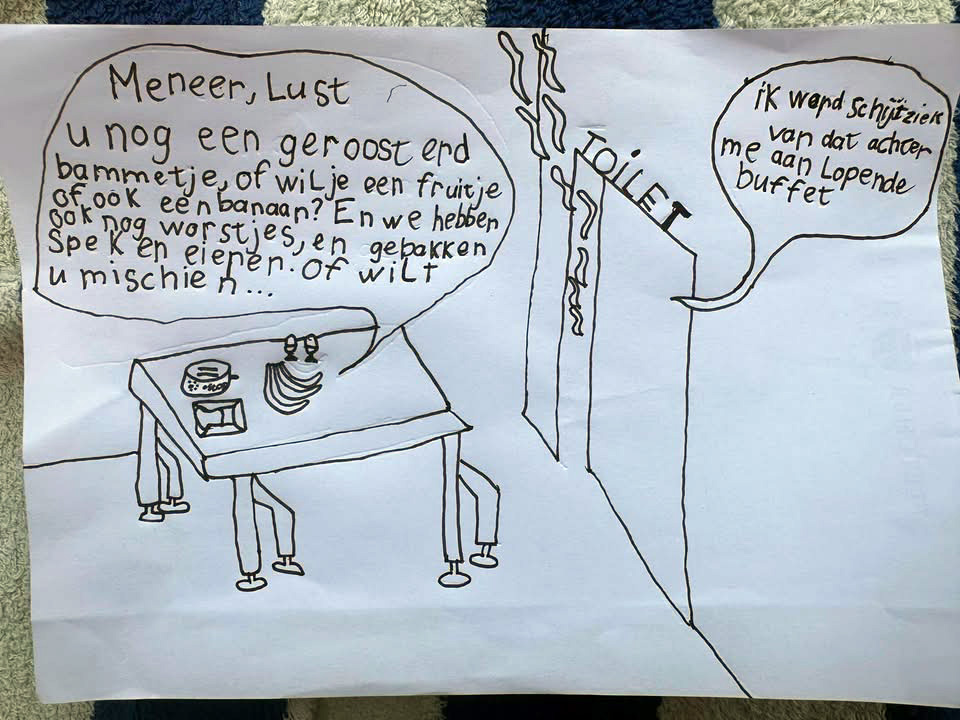 Meneer, Lust
u nog een geroosterd
bammetje, of wil je een fruitje
of ook een banaan? En we hebben
ook nog worstjes, en gebakken
spek en eieren. Of wilt
u mischien...
TOiLET
ik word schijtziek
van dat achter
me aan Lopende
buffet